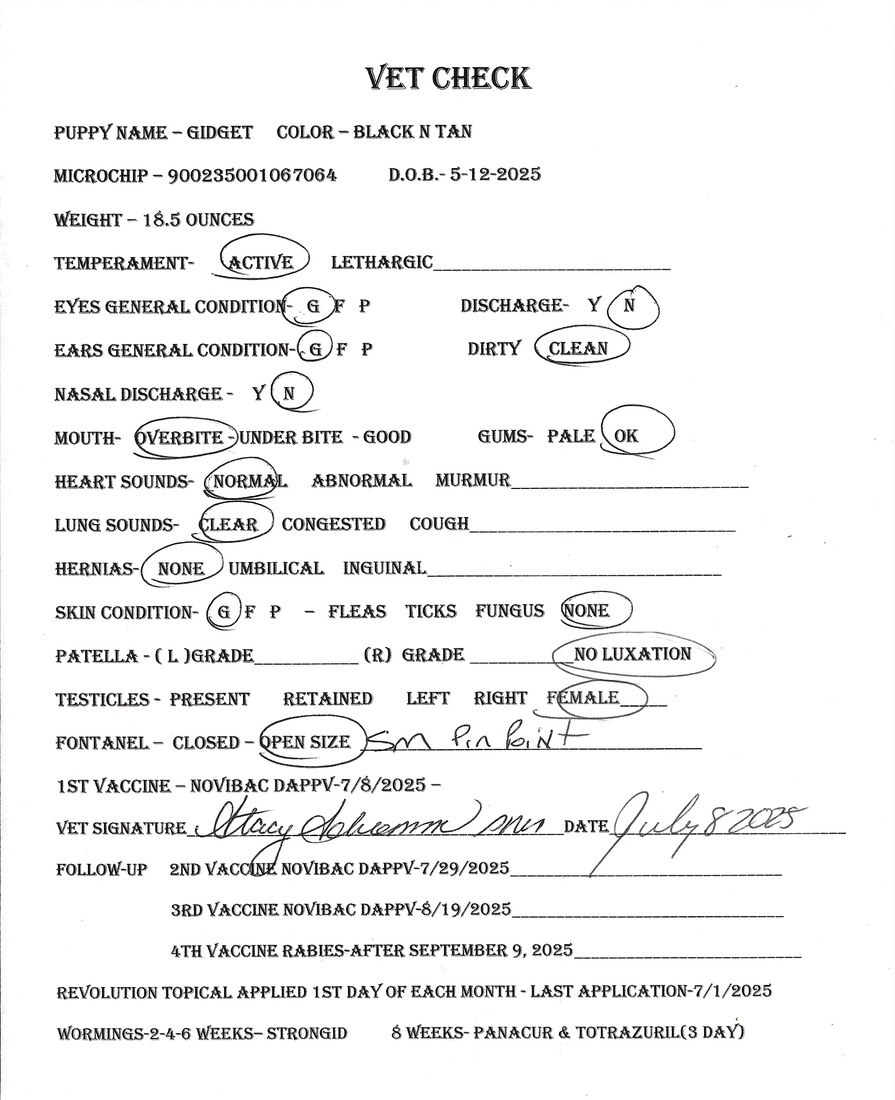 VET CHECK
PUPPY NAME – GIDGET COLOR – BLACK N TAN
MICROCHIP – 900235001067064 D.O.B.- 5-12-2025
WEIGHT – 18.5 OUNCES
TEMPERAMENT- ACTIVE LETHARGIC
EYES GENERAL CONDITION- G F P DISCHARGE- Y N
EARS GENERAL CONDITION- G F P DIRTY CLEAN
NASAL DISCHARGE - Y N
MOUTH- OVERBITE -UNDER BITE - GOOD GUMS- PALE OK
HEART SOUNDS- NORMAL ABNORMAL MURMUR
LUNG SOUNDS- CLEAR CONGESTED COUGH
HERNIAS- NONE UMBILICAL INGUINAL
SKIN CONDITION- G F P – FLEAS TICKS FUNGUS NONE
PATELLA - ( L )GRADE (R) GRADE NO LUXATION
TESTICLES - PRESENT RETAINED LEFT RIGHT FEMALE
FONTANEL – CLOSED – OPEN SIZE Sm Pin Point
1ST VACCINE – NOVIBAC DAPPV-7/8/2025 –
VET SIGNATURE Stacy DATE July 8 2025
FOLLOW-UP 2ND VACCINE NOVIBAC DAPPV-7/29/2025
3RD VACCINE NOVIBAC DAPPV-8/19/2025
4TH VACCINE RABIES-AFTER SEPTEMBER 9, 2025
REVOLUTION TOPICAL APPLIED 1ST DAY OF EACH MONTH - LAST APPLICATION-7/1/2025
WORMINGS-2-4-6 WEEKS– STRONGID 8 WEEKS- PANACUR & TOTRAZURIL(3 DAY)